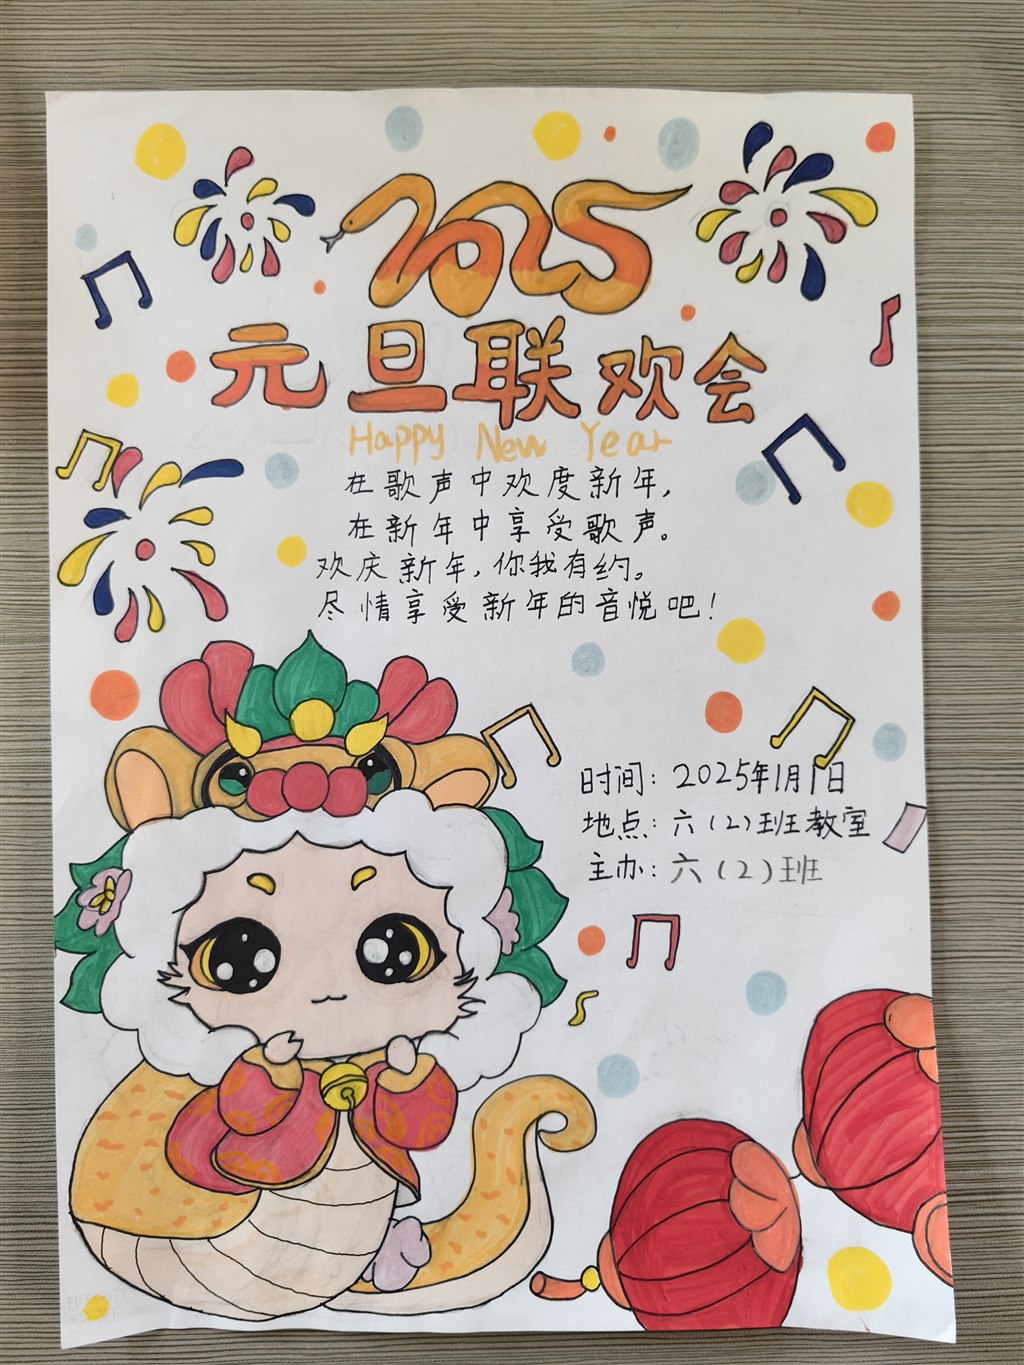 2025
元旦联欢会
Happy New Year
在歌声中欢度新年,
在新年中享受歌声。
欢庆新年,你我有约。
尽情享受新年的音悦吧!
时间:2025年1月1日
地点:六(2)班教室
主办:六(2)班